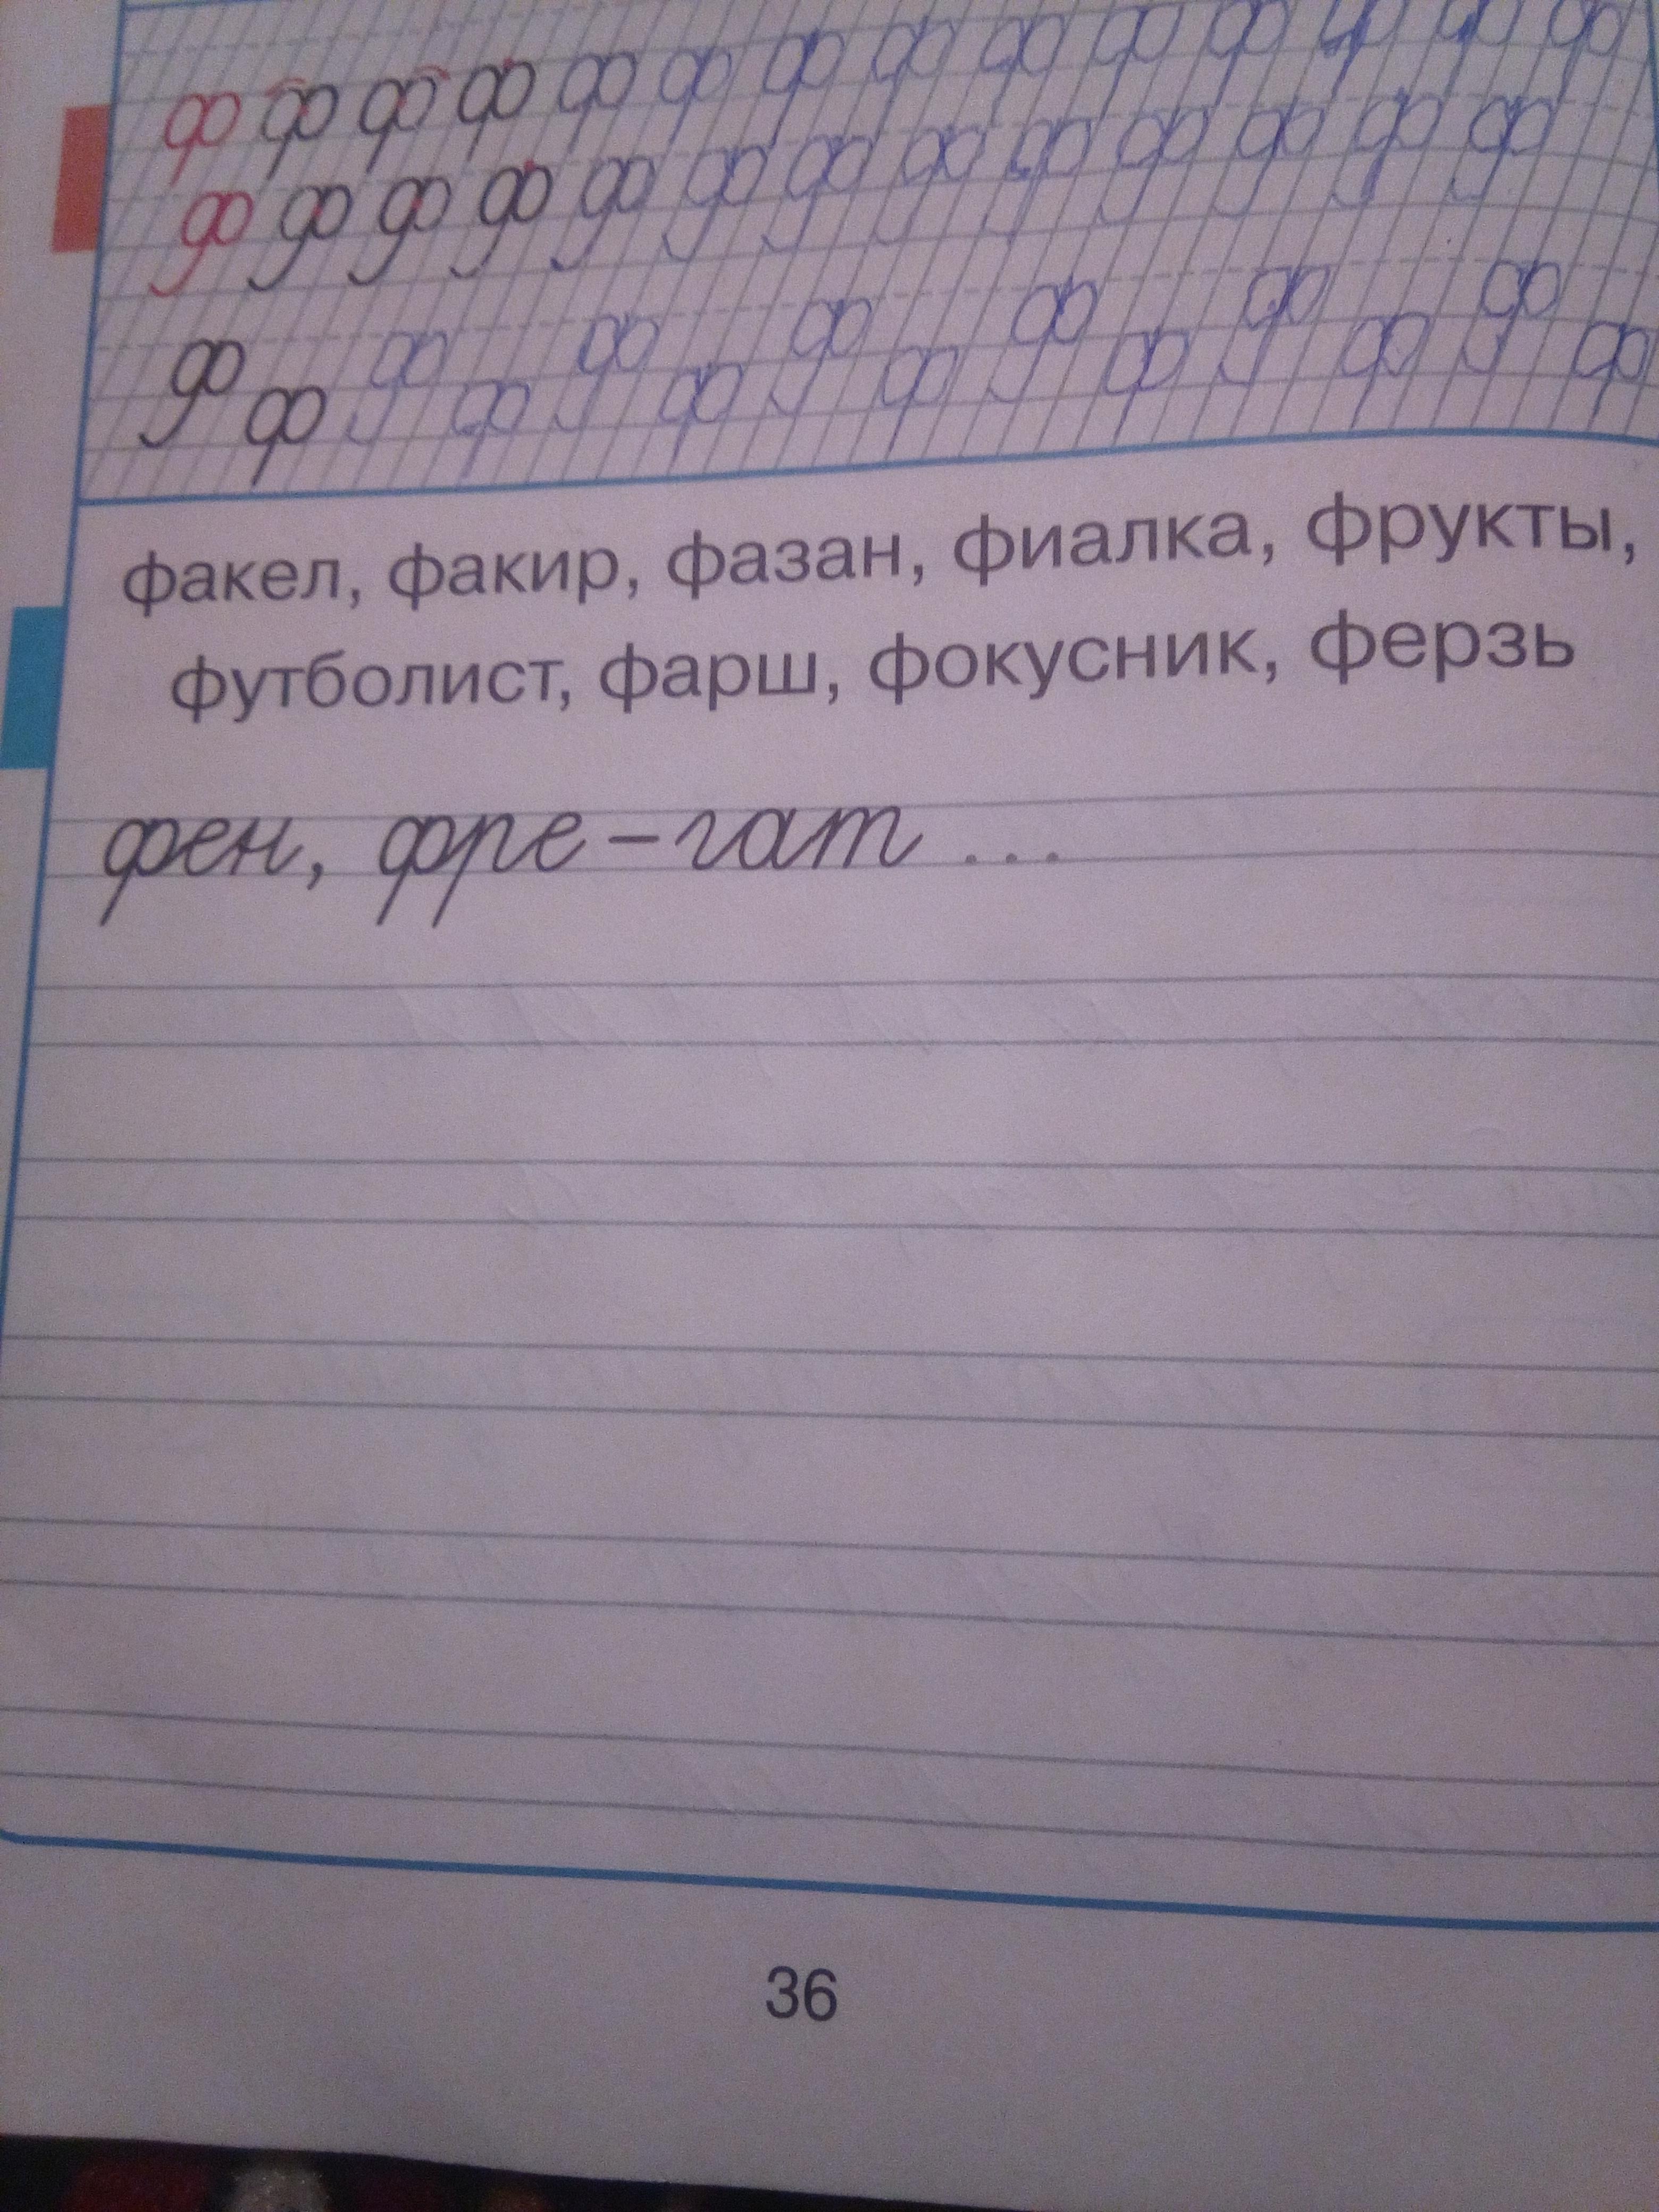 ф ф ф ф ф ф ф ф ф ф ф ф ф ф ф
ф ф ф ф ф ф ф ф ф ф ф ф ф
ф ф ф ф ф ф ф ф ф ф ф ф ф ф
факел, факир, фазан, фиалка, фрукты,
футболист, фарш, фокусник, ферзь
фен, фре-гат ...
36